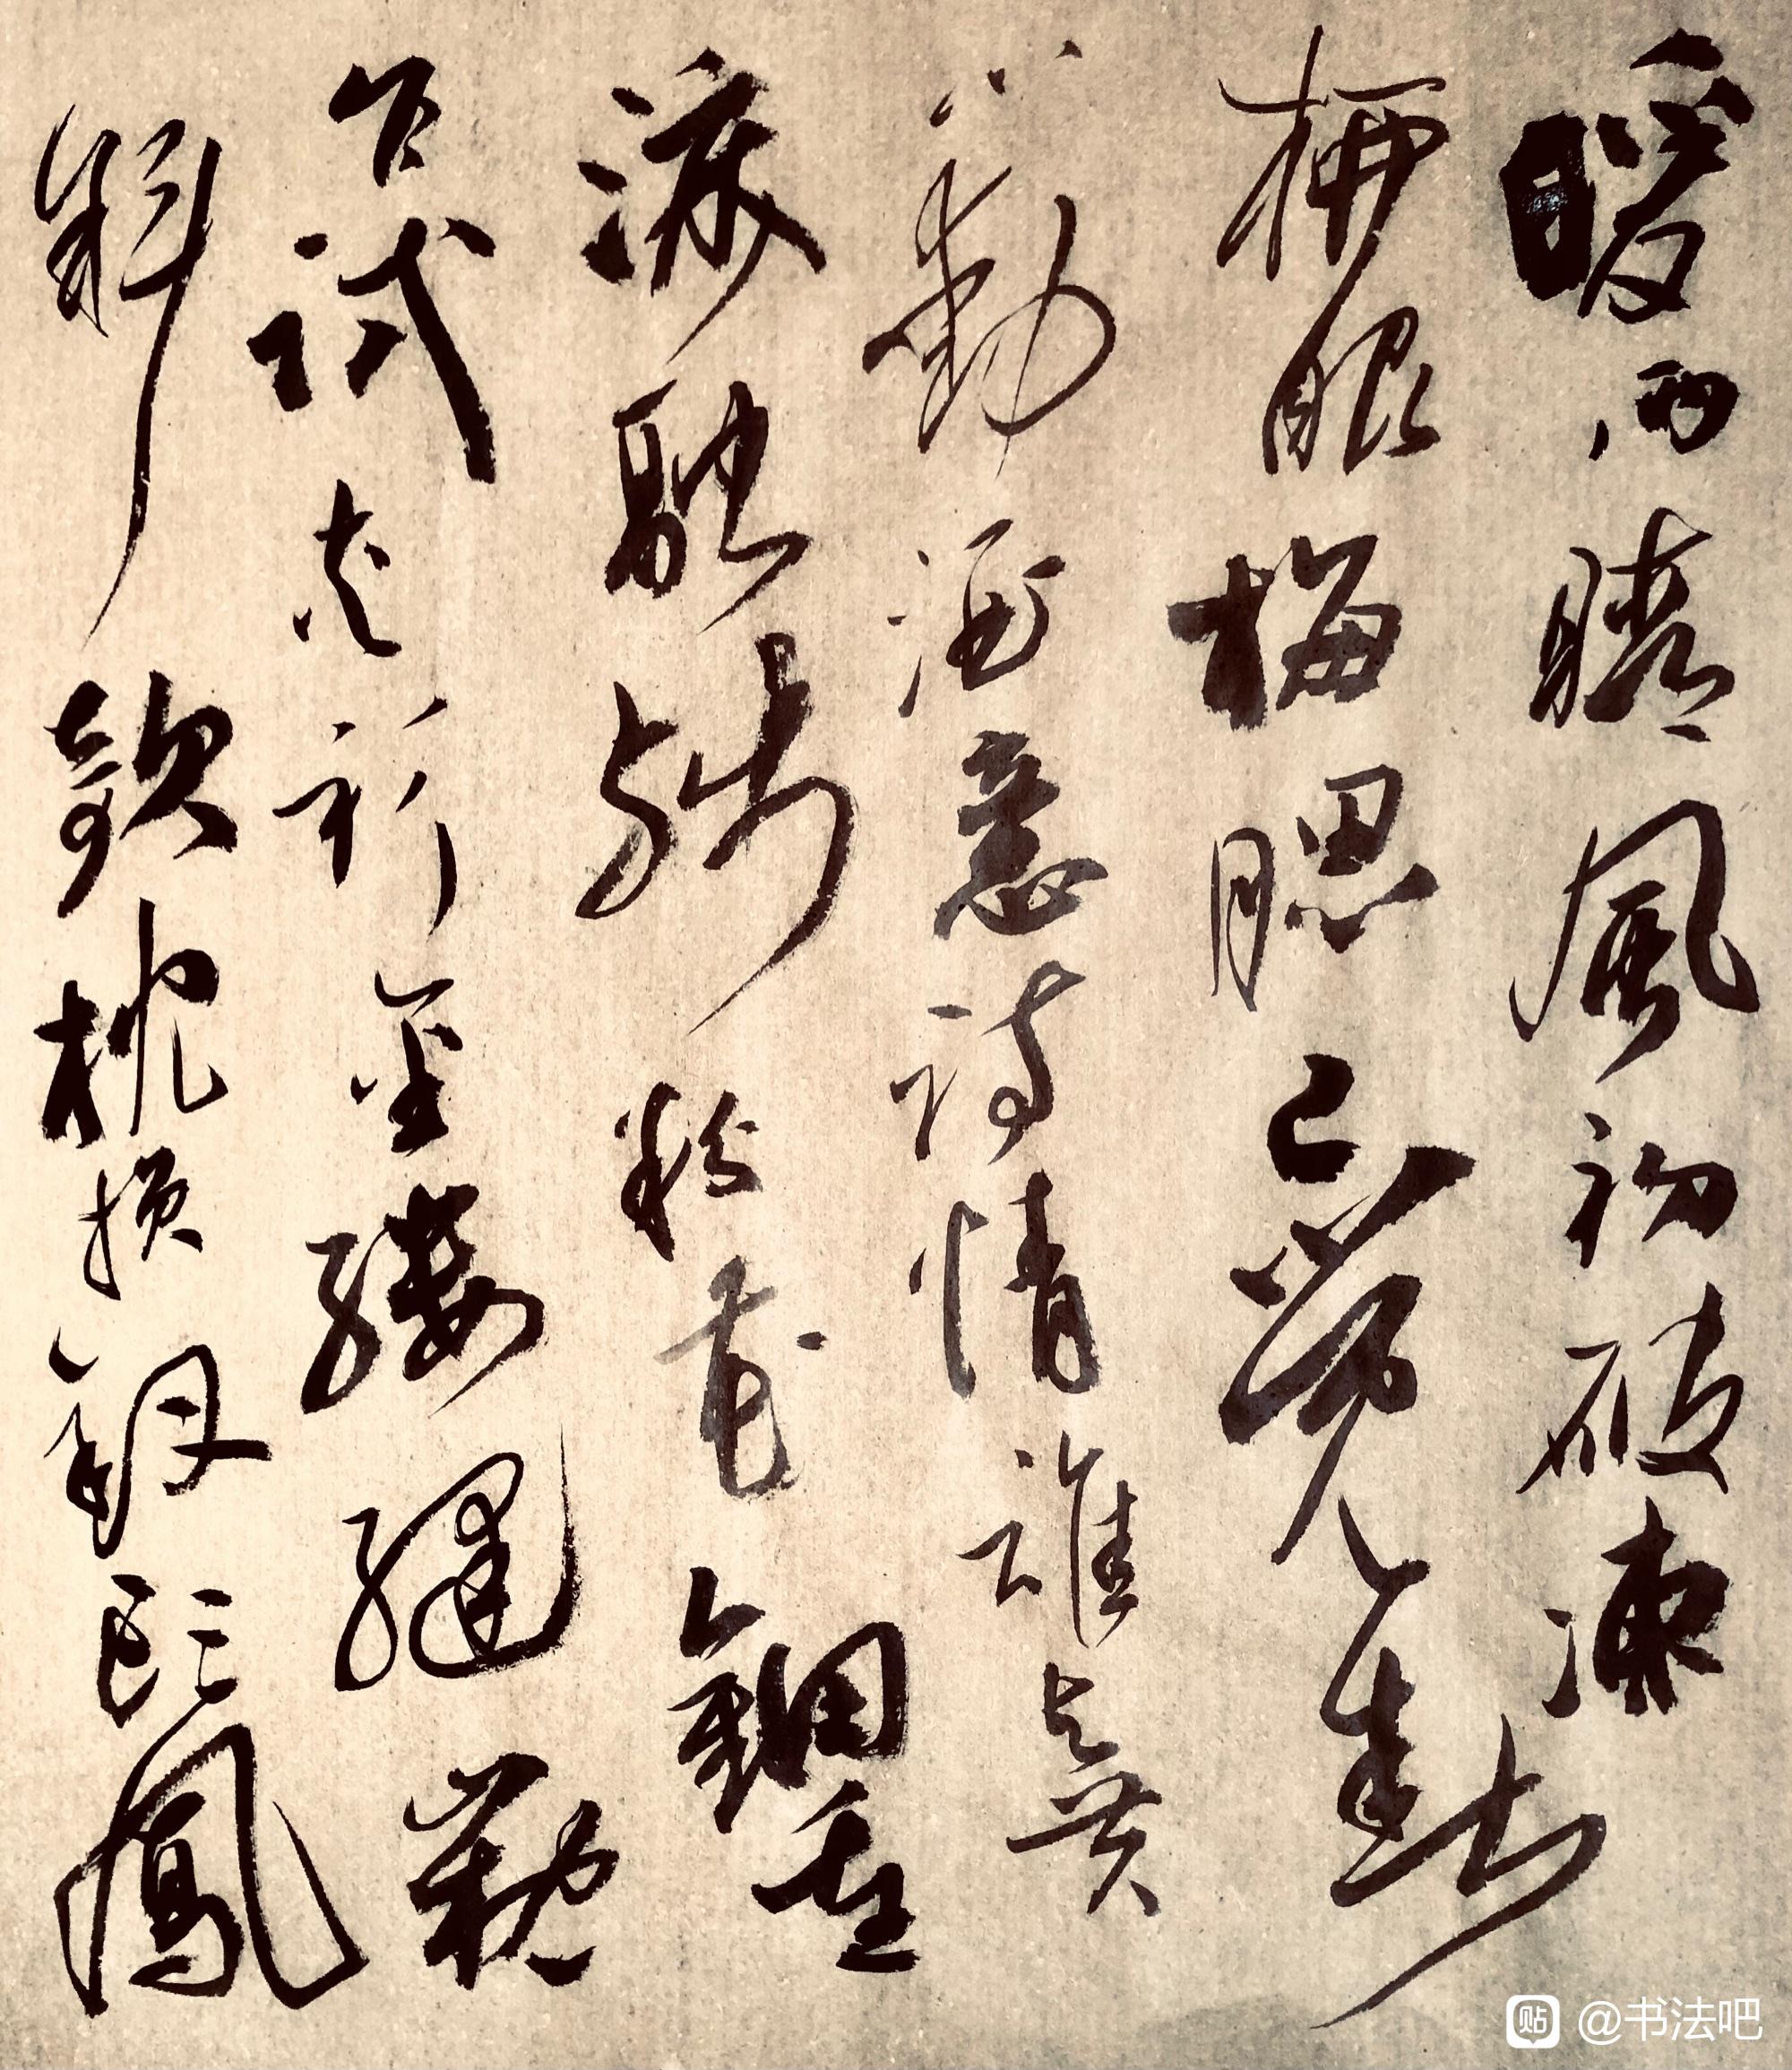 暖雨晴風初破凍
柳眼梅腮已覺春
心動酒意詩情誰与共
淚融殘粉花鈿重
乍試夾衫金縷縫山枕
斜欹枕損釵頭鳳
贴 @书法吧